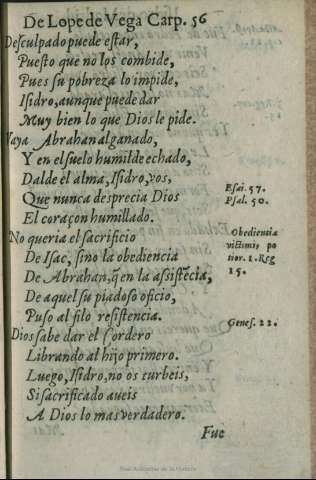 De Lope de Vega Carp. 56
Desculpado puede estar,
Puesto que no los combide,
Pues su pobreza lo impide,
Isidro, aunque puede dar
Muy bien lo que Dios le pide.
Vaya Abrahan al ganado,
Y en el suelo humilde echado,
Dalde el alma, Isidro, vos,
Que nunca desprecia Dios
El coraçon humillado.
Esai. 57.
Psal. 50.
No queria el sacrificio
De Isac, sino la obediencia
De Abrahan, q̃ en la assistẽcia,
De aquel su piadoso oficio,
Puso al filo resistencia.
Obedientia
victimis po
tior. 1. Reg
15.
Dios sabe dar el Cordero
Librando al hijo primero.
Luego, Isidro, no os turbeis,
Si sacrificado aueis
A Dios lo mas verdadero.
Genes. 22.
Fue
Real Academia de la Historia